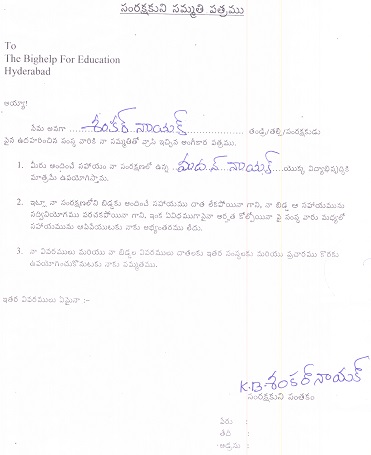 సంరక్షకుని సమ్మతి పత్రము
To
The Bighelp For Education
Hyderabad
అయ్యా!
నేను అనగా ....శంకర్ నాయక్.................... తండ్రి/తల్లి/సంరక్షకుడు
పైన ఉదహరించిన సంస్థ వారికి నా సమ్మతితో వ్రాసి ఇచ్చిన అంగీకార పత్రము.
1. మీరు అందించే సహాయం నా సంరక్షణలో ఉన్న నాయక్ యొక్క విద్యాభివృద్ధికి
మాత్రమే ఉపయోగిస్తాను.
2. ఇట్లూ నా సంరక్షణలోని బిడ్డకు అందించే సహాయము దాత లేకపోయినా గాని, నా బిడ్డ ఆ సహాయమును
సద్వినియోగము పరచకపోయినా గాని, ఇంక ఏవిధముగానైనా అర్హత కోల్పోయినా పై సంస్థ వారు మధ్యలో
సహాయమును ఆపివేయుటకు నాకు అభ్యంతరము లేదు.
3. నా వివరములు మరియు నా బిడ్డల వివరములు దాతలకు ఇతర సంస్థలకు మరియు ప్రచారము కొరకు
ఉపయోగించుకొనుటకు నాకు సమ్మతము.
ఇతర వివరములు ఏమైనా :-
K.B.శంకర్ నాయక్
సంరక్షకుని సంతకం
పేరు :
తేది :
అడ్రసు :